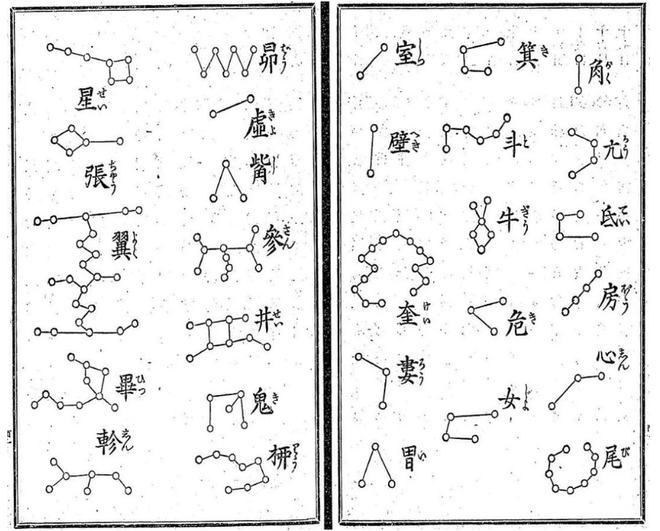 角 かく
亢 かう
氐 てい
房 ばう
心 しん
尾 び
箕 き
斗 と
牛 ぎう
危 き
女 じよ
室 しつ
壁 へき
奎 けい
婁 ろう
胃 い
昴 ばう
虛 きよ
觜 し
參 さん
井 せい
鬼 き
柳 りう
星 せい
張 ちやう
翼 よく
畢 ひつ
軫 しん